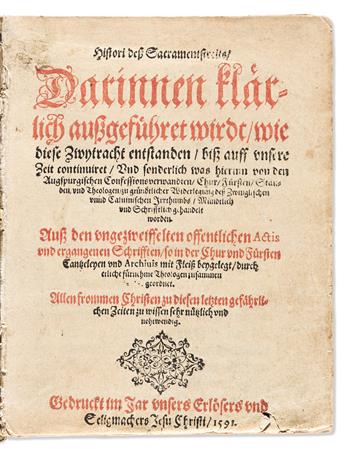 Histori deß Sacramentstreits/
Darinnen klär-
lich außgeführet wirdt/wie
diese Zwytracht entstanden / biß auff vnsere
Zeit continuiret / Vnd sonderlich was hierinn von den
Augspurgischen Confessionsverwandten / Chur/ Fürsten / Stän-
den, vnd Theologen zu gründtlicher Widerlegung deß Zwinglischen
vnnd Caluinischen Irrthumbs / Mündtlich
vnd Schrifftlich gehandelt
worden.
Auß den vngezweiffelten offentlichen Actis
vnd ergangenen Schrifften/so in der Chur vnd Fürsten
Cantzeleyen vnd Archiuis mit Fleiß beygelegt/durch
etliche fürneme Theologen zusammen
geordnet.
Allen frommen Christen zu diesen letzten gefährli-
chen Zeiten zu wissen sehr nützlich vnd
nohtwendig.
Gedruckt im Jar vnsers Erlösers vnd
Seligmachers Jesu Christi/1591.